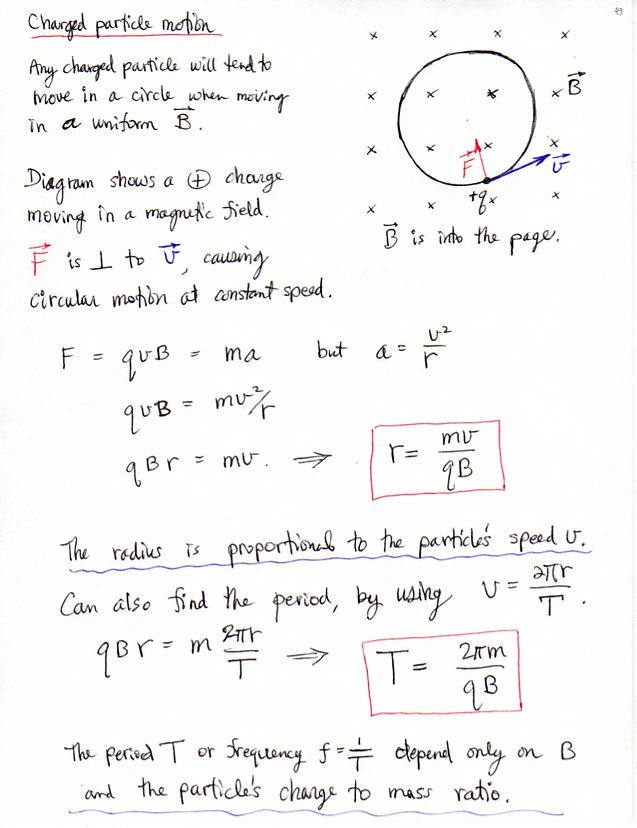 49
Charged particle motion
Any charged particle will tend to
move in a circle when moving
in a uniform B⃗.
Diagram shows a ⊕ charge
moving in a magnetic field.
F⃗ is ⊥ to v⃗, causing
circular motion at constant speed.
x x x x
x x x x B⃗
x x x
F⃗ v⃗
x x +q x x
B⃗ is into the page.
F = qvB = ma but a = v²/r
qvB = mv²/r
qBr = mv. ⟹ r = mv/qB
The radius is proportional to the particle's speed v.
Can also find the period, by using v = 2πr/T.
qBr = m 2πr/T ⟹ T = 2πm/qB
The period T or frequency f = 1/T depend only on B
and the particle's charge to mass ratio.